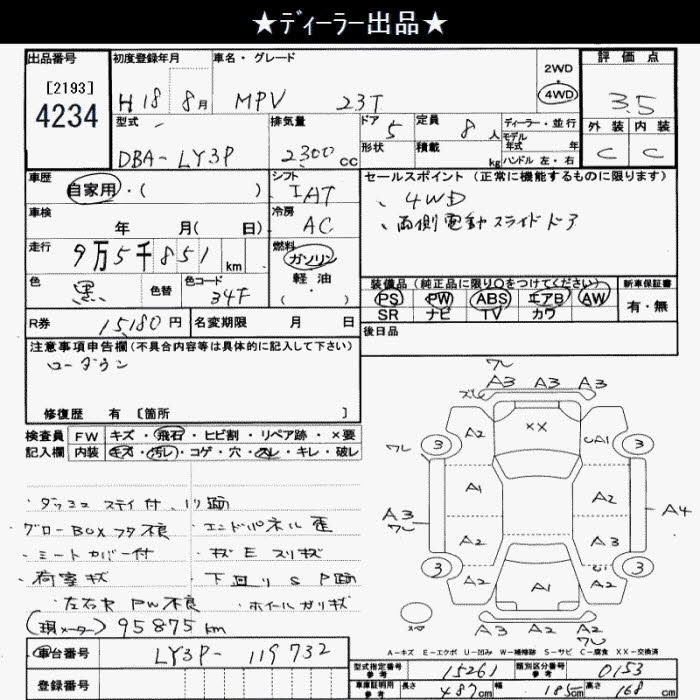 ★ディーラー出品★
出品番号 初度登録年月 車名・グレード 2WD 評価点
[2193] H18 8月 MPV 23T 4WD 3.5
4234 型式 排気量 ドア 5 定員 8人 ディーラー・並行 外装 内装
DBA-LY3P 2300cc 形状 積載 kg モデル年式 年 C C
ハンドル 左・右
車歴 自家用・( ) シフト IAT セールスポイント (正常に機能するものに限ります)
車検 年 月( 日) 冷房 AC 、4WD
、両側電動スライドドア
走行 9万5千851km 燃料 ガソリン
軽油
・( )
色 黒 色替 色コード 34F 装備品 (純正品に限り○をつけてください) 新車保証書
PS PW ABS エアB AW 有・無
SR ナビ TV カワ
R券 15180円 名変期限 月 日 後日品
注意事項申告欄 (不具合内容等は具体的に記入して下さい)
ローダウン
修復歴 有 [箇所 ]
検査員 FW キズ・飛石・ヒビ割・リペア跡・×要
記入欄 内装 キズ・汚レ・コゲ・穴・スレ・キレ・破レ
ワレ
A3 A3 A3
A2 XX UA1
3 3
ワレ
A1 A2
A3 A4
ワレ
A2 A2 A3
3 3
A2 A1 A2
A3 A2 A2
・ダッシュ ステイ付、ノリ跡
・グローBOXフタ不良 ・エンドパネル歪
・シートカバー付 ・キズE スリキズ
・荷室キズ ・下回りS P跡
・左右R PW不良 ・ホイールガリキズ
(現メーター) 95875km
A-キズ E-エクボ U-凹み W-補修跡 S-サビ C-腐食 XX-交換済
車台番号 LY3P-119732
登録番号
型式指定番号 参考 15261 類別区分番号 参考 0153
車庫証明用 参考 長さ 487cm 幅 185cm 高さ 168cm